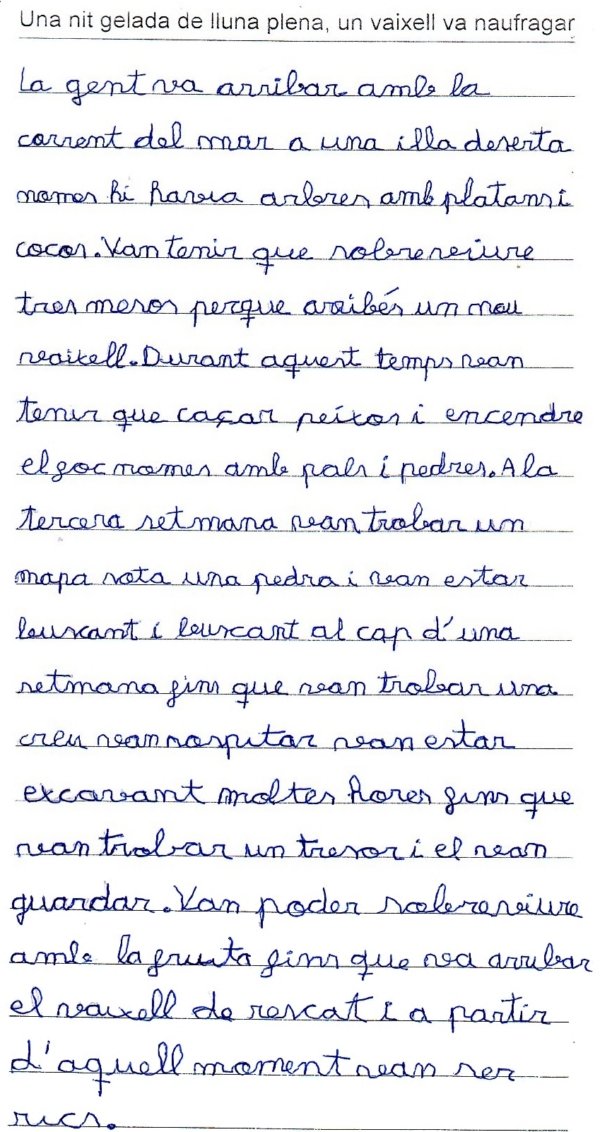 Una nit gelada de lluna plena, un vaixell va naufragar
La gent va arribar amb la
corrent del mar a una illa deserta
nomes hi havia arbres amb platans i
cocos. Van tenir que sobreviure
tres mesos perque arribés un nou
vaixell. Durant aquest temps van
tenir que caçar peixos i encendre
el foc nomes amb pals i pedres. A la
tercera setmana van trobar un
mapa sota una pedra i van estar
buscant i buscant al cap d'una
setmana fins que van trobar una
creu van sospitar van estar
excavant moltes hores fins que
van trobar un tresor i el van
guardar. Van poder sobreviure
amb la fruita fins que va arribar
el vaixell de rescat i a partir
d'aquell moment van ser
rics.